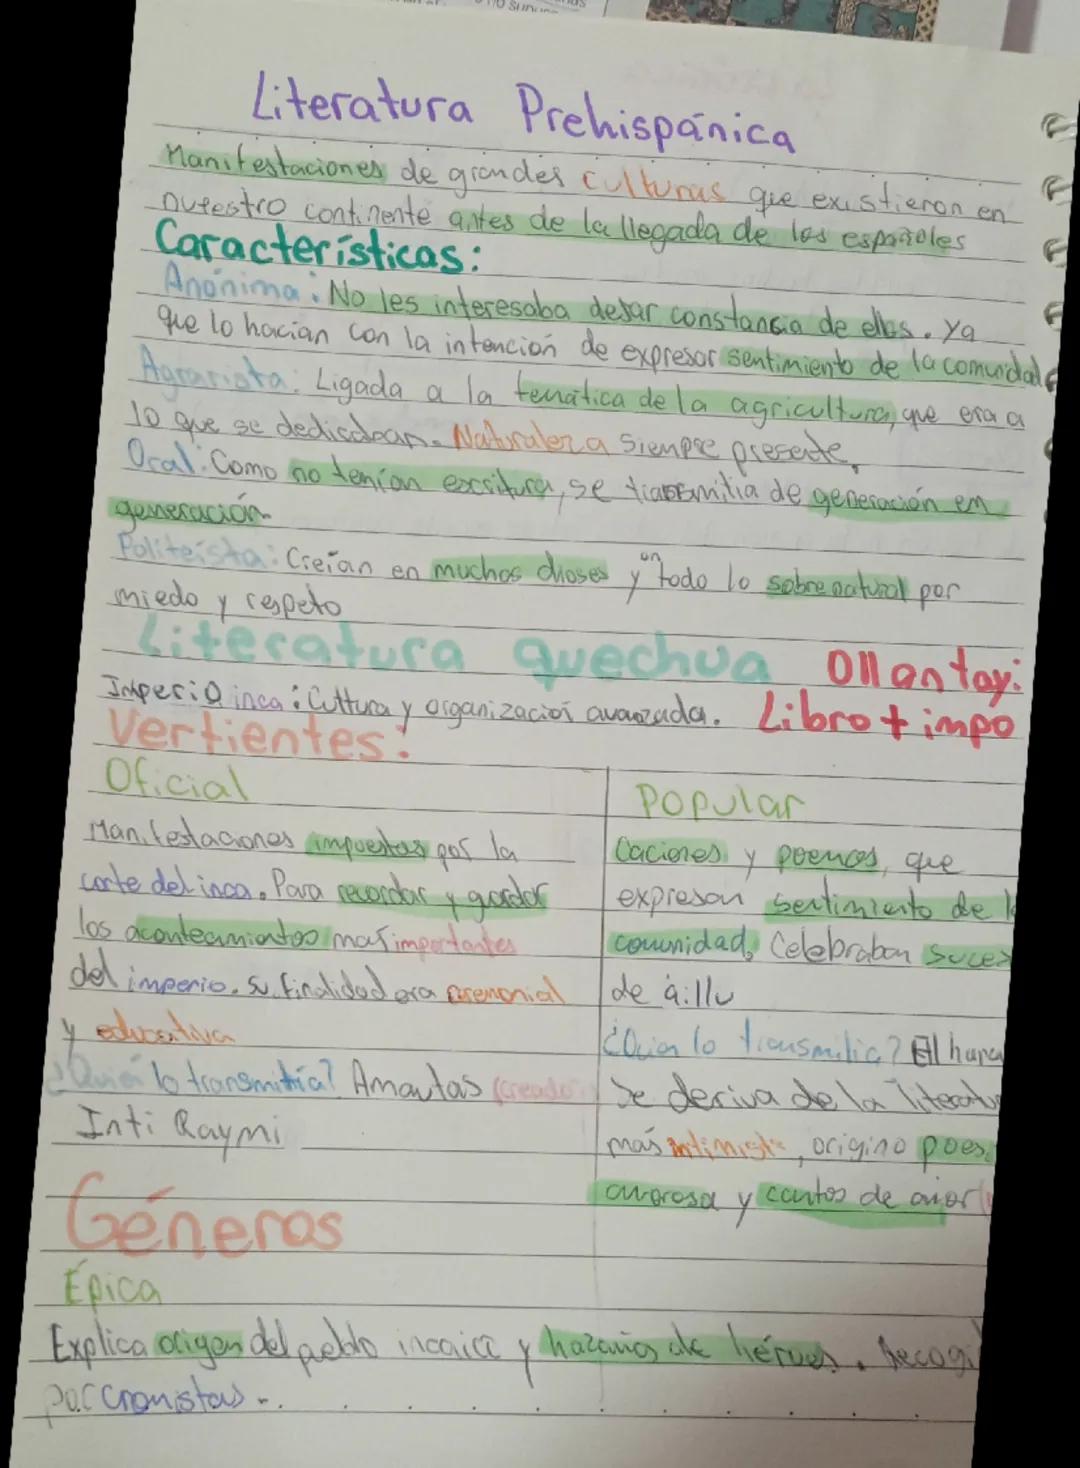 Literatura Prehispánica
Manifestaciones de grandes culturas que existieron en
nutestro continente antes de la llegada de los españoles
Características:
Anónima: No les interesaba dejar constancia de ellos. Ya
que lo hacian con la intención de expresar sentimiento de la comunidad
Agrarista: Ligada a la temática de la agricultura, que era a
lo que se dedicaban. Naturaleza siempre presente.
Oral: Como no tenían escritura, se transmitia de generación en
generación
Politeísta: Creían en muchos dioses y en todo lo sobrenatural por
miedo y respeto
Literatura quechua Ollantay:
Imperio inca: Cultura y organización avanzada. Libro + impo
Vertientes:
Oficial
Manifestaciones impuestas por la
corte del inca. Para recordar y guardar
los acontecimientos mas importantes
del imperio. Su finalidad era ceremonial
y educativa
¿Quién lo transmitía? Amautas (creado
Inti Raymi
Popular
Caciones y poemas, que
expresan sentimiento de l
comunidad. Celebraban suces
de aillu
¿Quien lo transmitia? El hara
Se deriva de la literatu
más intimista, origino poes
amorosa y cantos de amor
Géneros
Épica
Explica origen del peblo incaica y hazañas de héroes. Recogi
por cronistas.